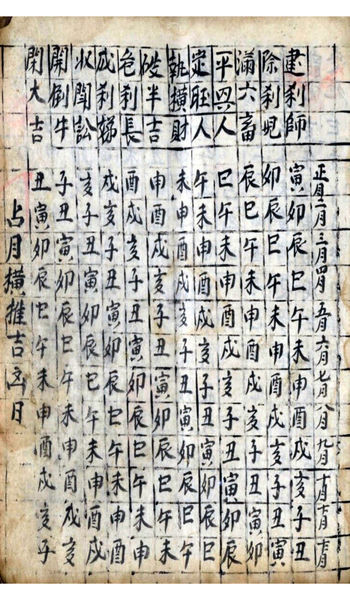 正月二月三月四月五月六月七月八月九月十月十一月十二月
建刹師寅卯辰巳午未申酉戌亥子丑
除刹兒卯辰巳午未申酉戌亥子丑寅
滿六畜辰巳午未申酉戌亥子丑寅卯
平人巳午未申酉戌亥子丑寅卯辰
定人午未申酉戌亥子丑寅卯辰巳
執橫財未申酉戌亥子丑寅卯辰巳午
破半吉申酉戌亥子丑寅卯辰巳午未
危刹長酉戌亥子丑寅卯辰巳午未申
成刹娣戌亥子丑寅卯辰巳午未申酉
收訟亥子丑寅卯辰巳午未申酉戌
開倒牛子丑寅卯辰巳午未申酉戌亥
閉大吉丑寅卯辰巳午未申酉戌亥子
占月橫推吉凶日